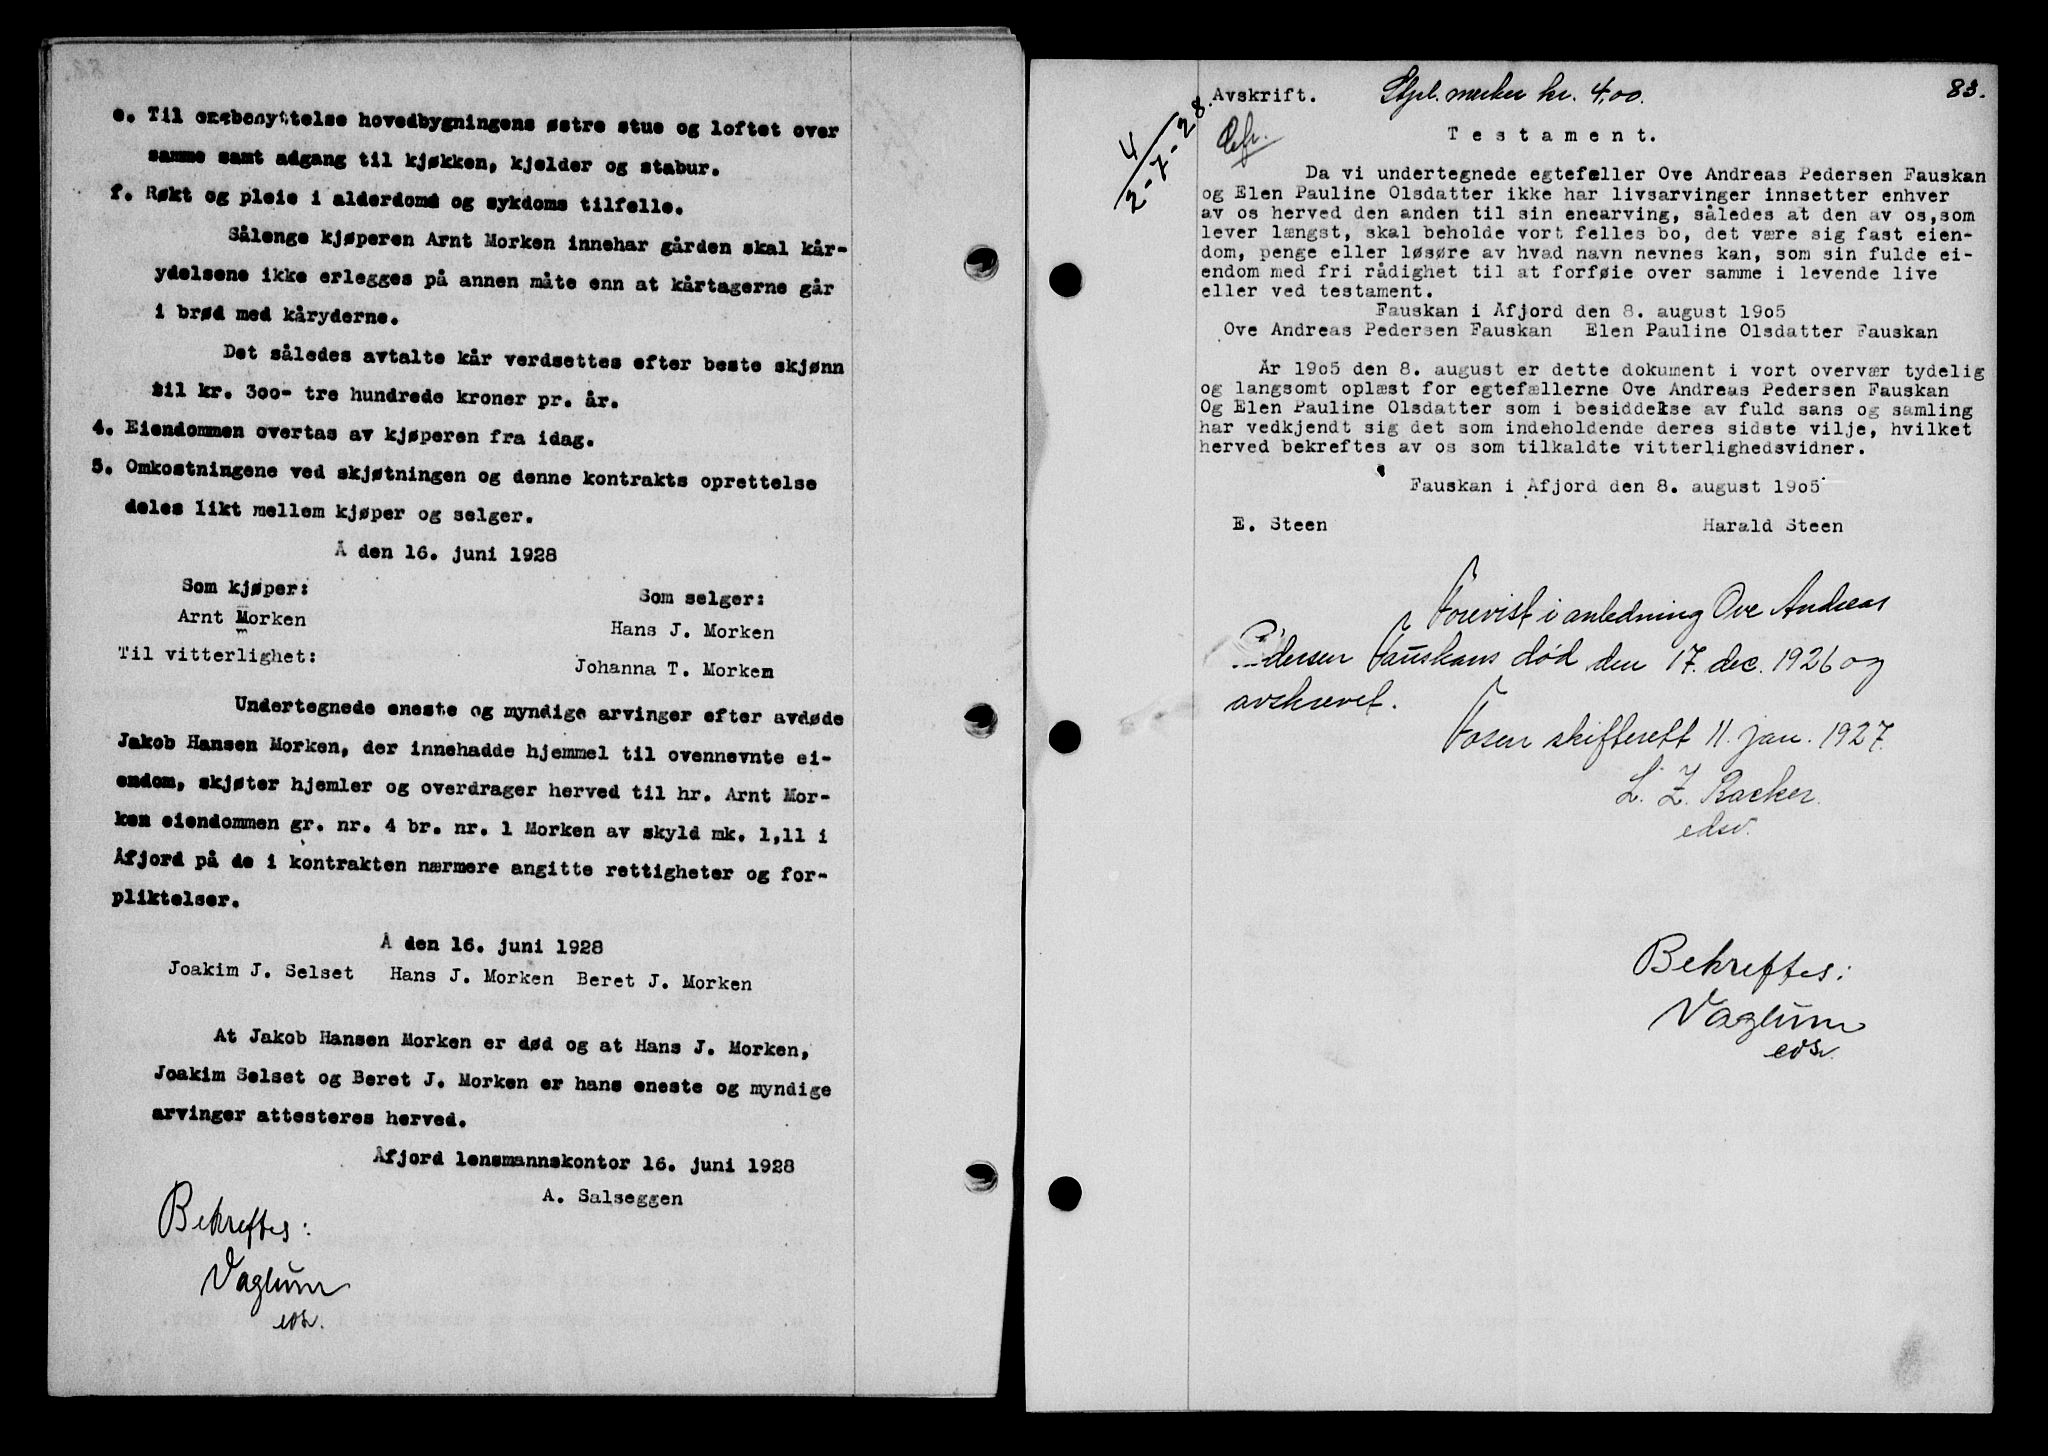 e. Til enebenyttelse hovedbygningens østre stue og loftet over
samme samt adgang til kjøkken, kjelder og stabur.
f. Røkt og pleie i alderdoms og sykdoms tilfelle.
Sålenge kjøperen Arnt Morken innehar gården skal kår-
ydelsene ikke erlegges på annen måte enn at kårtagerne går
i brød med kåryderne.
Det således avtalte kår verdsettes efter beste skjønn
til kr. 3oo- tre hundrede kroner pr. år.
4. Eiendommen overtas av kjøperen fra idag.
5. Omkostningene ved skjøtningen og denne kontrakts oprettelse
deles likt mellem kjøper og selger.
Å den 16. juni 1928
Som kjøper:
Som selger:
Arnt Morken
Hans J. Morken
Til vitterlighet:
Johanna T. Morken
Undertegnede eneste og myndige arvinger efter avdøde
Jakob Hansen Morken, der innehadde hjemmel til ovennevnte ei-
endom, skjøter hjemler og overdrager herved til hr. Arnt Mor-
ken eiendommen gr. nr. 4 br. nr. 1 Morken av skyld mk. 1,11 i
Åfjord på de i kontrakten nærmere angitte rettigheter og for-
pliktelser.
Å den 16. juni 1928
Joakim J. Selset Hans J. Morken Beret J. Morken
At Jakob Hansen Morken er død og at Hans J. Morken,
Joakim Selset og Beret J. Morken er hans eneste og myndige
arvinger attesteres herved.
Åfjord lensmannskontor 16. juni 1928
A. Salseggen
Bekreftes:
Vaglum
edsv.
83.
Avskrift. Stpl. merker kr. 4,00.
4/2-7-28.
Testament.
Da vi undertegnede egtefæller Ove Andreas Pedersen Fauskan
og Elen Pauline Olsdatter ikke har livsarvinger innsetter enhver
av os herved den anden til sin enearving, således at den av os,som
lever længst, skal beholde vort felles bo, det være sig fast eien-
dom, penge eller løsøre av hvad navn nevnes kan, som sin fulde ei-
endom med fri rådighet til at forføie over samme i levende live
eller ved testament.
Fauskan i Åfjord den 8. august 19o5
Ove Andreas Pedersen Fauskan Elen Pauline Olsdatter Fauskan
År 19o5 den 8. august er dette dokument i vort overvær tydelig
og langsomt oplæst for egtefællerne Ove Andreas Pedersen Fauskan
Og Elen Pauline Olsdatter som i besiddelse av fuld sans og samling
har vedkjendt sig det som indeholdende deres sidste vilje, hvilket
herved bekreftes av os som tilkaldte vitterlighedsvidner.
Fauskan i Åfjord den 8. august 19o5
E. Steen Harald Steen
Forevist i anledning Ove Andreas
Pedersen Fauskans død den 17. dec. 1926 og
avskrevet.
Fosen skifterett 11. jan. 1927.
L. Z. Backer
edsv.
Bekreftes:
Vaglum
edsv.